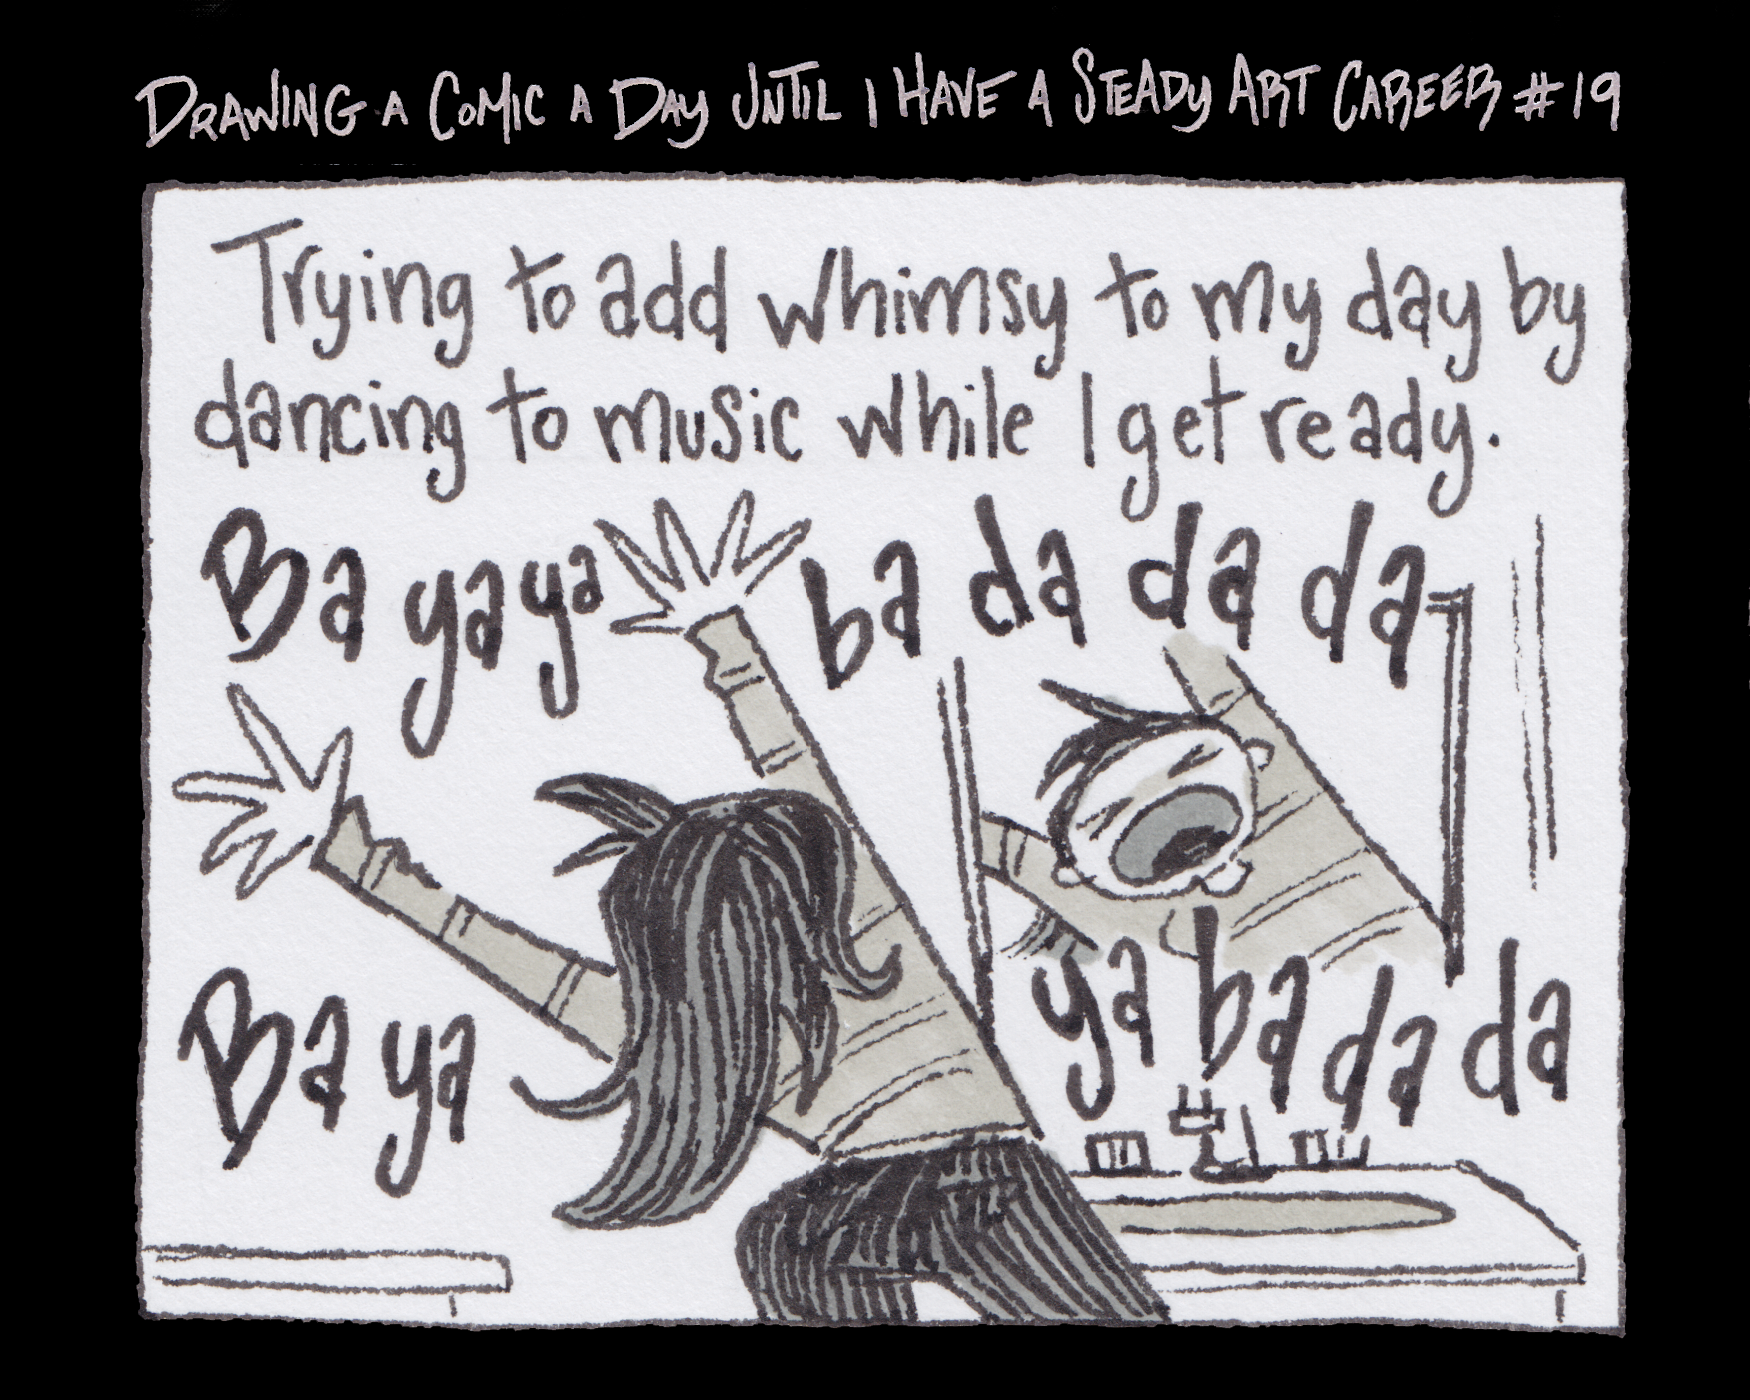 DRAWING A COMIC A DAY UNTIL I HAVE A STEADY ART CAREER #19
Trying to add whimsy to my day by
dancing to music while I get ready.
Ba yaya ya ba da da da
Ba ya ya ba da da